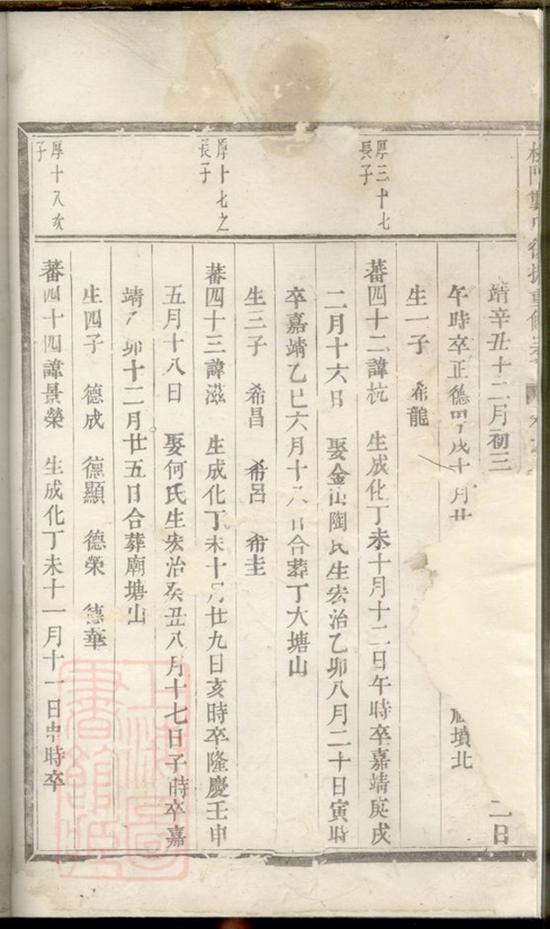 靖辛丑十二月初三 二日
午時卒正德 戌十月廿 墳北
生一子 希龍
厚三十七長子
蕃四十二諱杭 生成化丁未十月十二日午時卒嘉靖庚戌
二月十六日 娶金山陶氏生宏治乙卯八月二十日寅時
卒嘉靖乙巳六月十六日合葬丁大塘山
生三子 希昌 希呂 希圭
厚十七之長子
蕃四十三諱滋 生成化丁未十月廿九日亥時卒隆慶壬申
五月十八日 娶何氏生宏治癸丑八月十七日子時卒嘉
靖乙卯十二月廿五日合葬廟塘山
生四子 德成 德顯 德榮 德華
厚十八亥子
蕃四十四諱景榮 生成化丁未十一月十一日申時卒